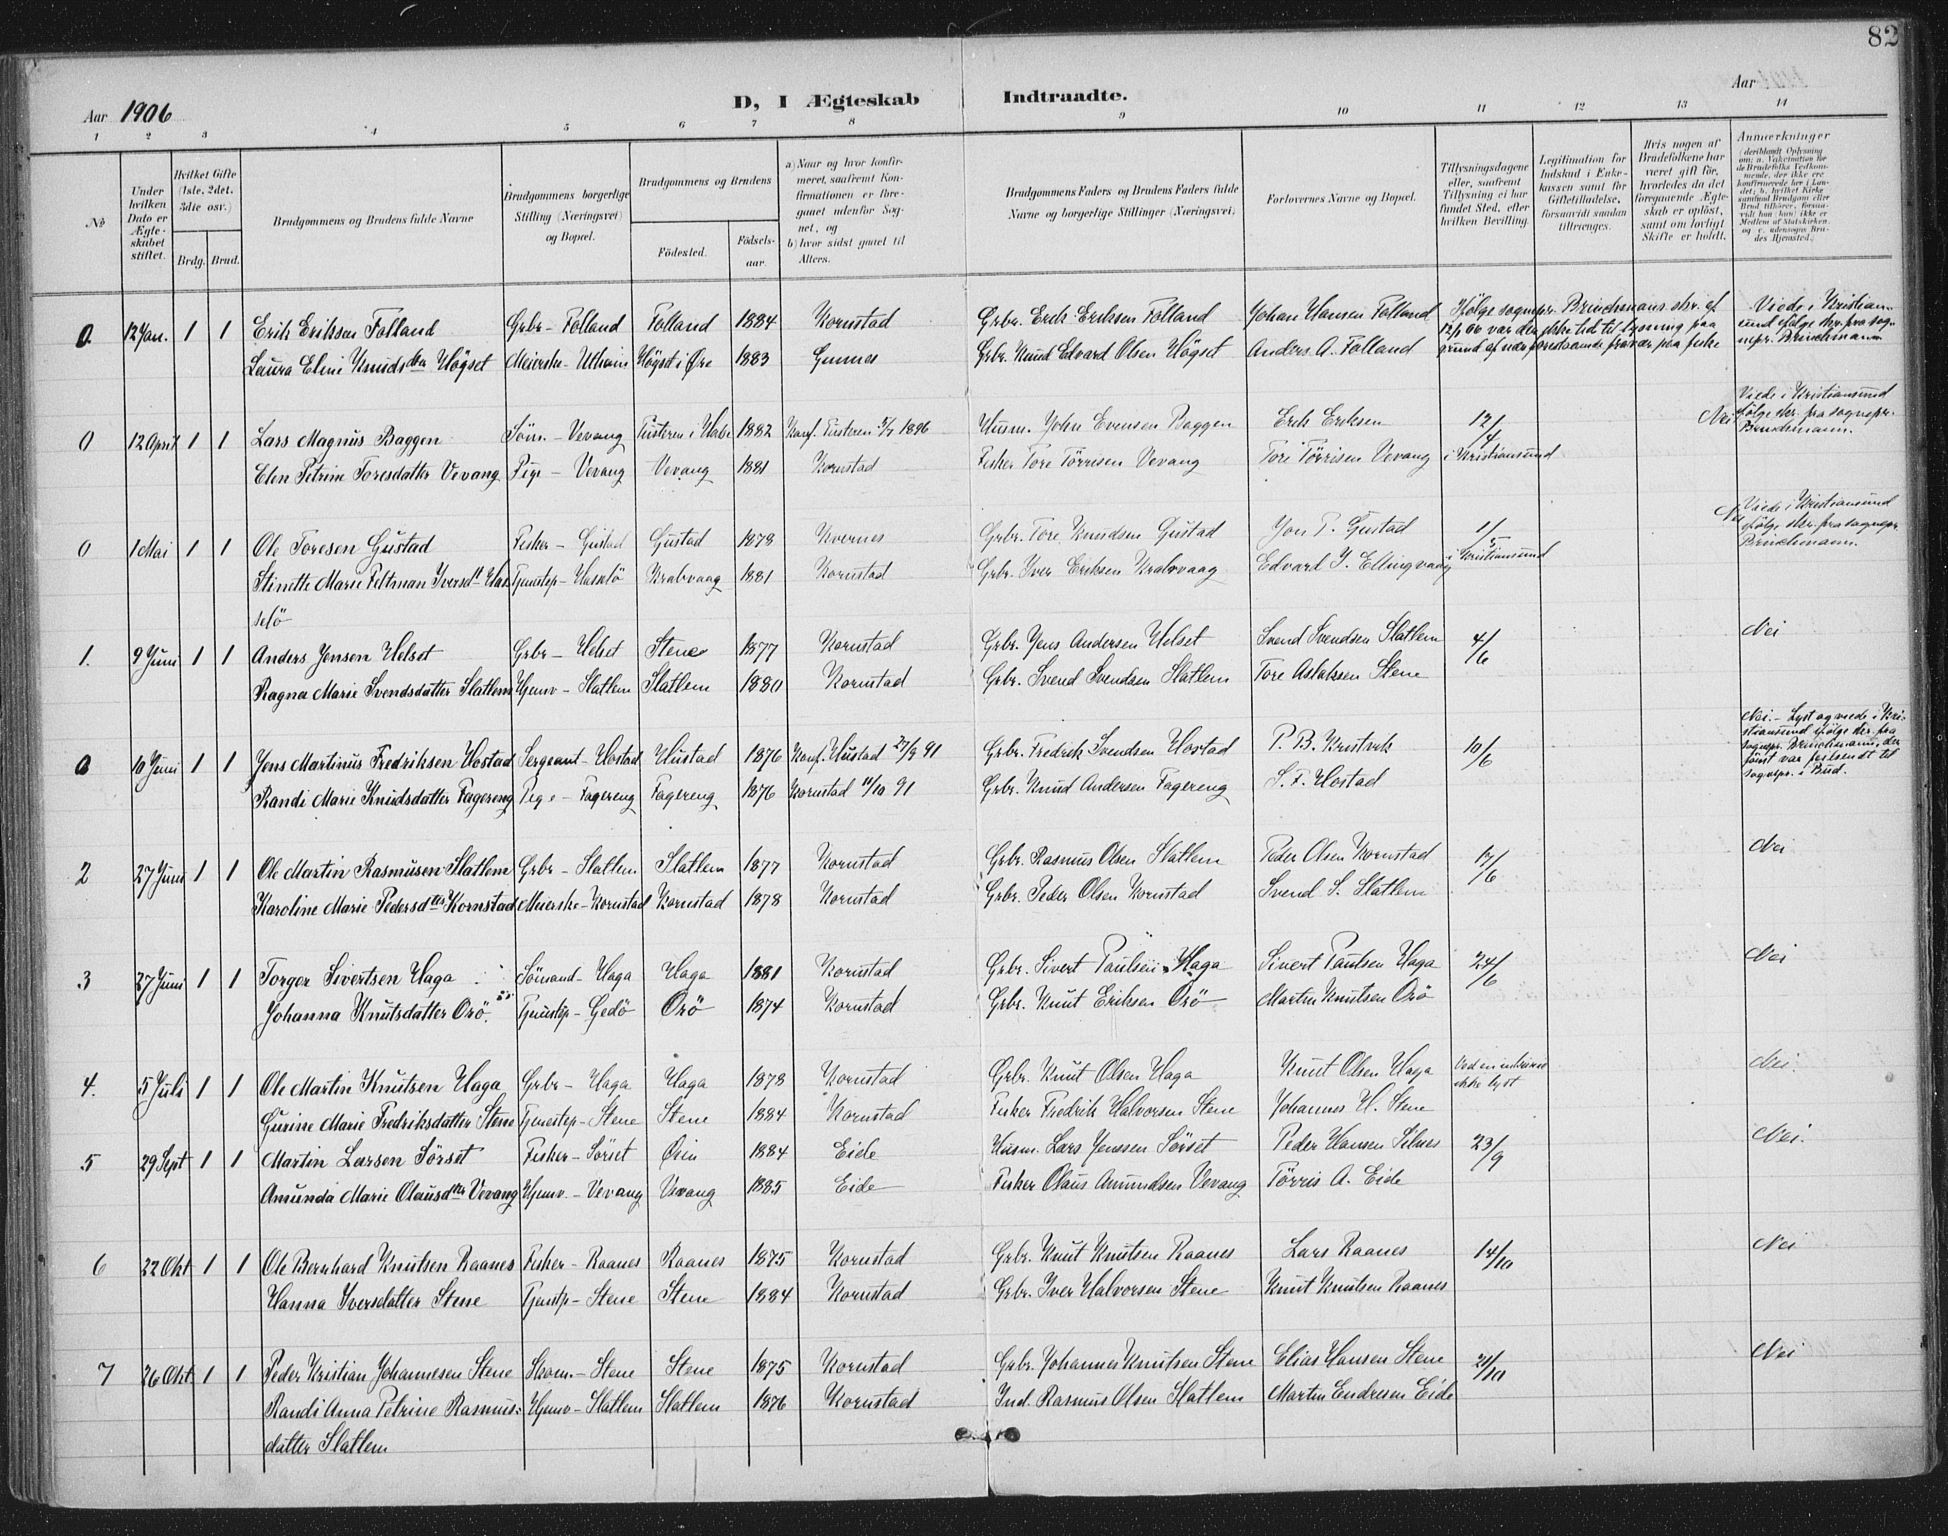 82
Aar 1906
D, I Ægteskab Indtraadte.
Aar
1 2 3 4 5 6 7 8 9 10 11 12 13 14
No
Under hvilken Dato er Ægteskabet stiftet.
Hvilket Gifte (1ste, 2det, 3die osv.)
Brdg. Brud.
Brudgommens og Brudens fulde Navne
Brudgommens borgerlige Stilling (Næringsvei) og Bopæl.
Brudgommens og Brudens
Födested.
Födselsaar.
a) Naar og hvor konfirmeret, saafremt Konfirmationen er foregaaet udenfor Sognet, og
b) hvor sidst gaaet til Alters.
Brudgommens Faders og Brudens Faders fulde Navne og borgerlige Stillinger (Næringsvei)
Forlovernes Navne og Bopæl.
Tillysningsdagene eller, saafremt Tillysning ei har fundet Sted, efter hvilken Bevilling.
Legitimation for Indskud i Enkekassen samt for Giftetilladelse, forsaavidt saadan tiltrænges.
Hvis nogen af Brudefolkene har været gift för, hvorledes da det foregaaende Ægteskab er oplöst, samt om lovligt Skifte er holdt.
Anmærkninger
0. 12 Jan. 1 1 Erik Eriksen Folland Grbr - Folland Folland 1884 Kornstad Grbr. Erik Eriksen Folland Johan Hansen Folland Ifølge sognepr. Brinchmans skr. af Viede i Kristian-
12/1 06 var der ikke tid til lysning paa sund ifølge skr. fra sog-
Laura Elini Knudsdtr Högset Meierske - Utheim Högset i Øre 1883 Gimnes Grbr. Knud Edvard Olsen Högset Anders A. Folland grund af nær forestaaende fravær paa fiske nepr. Brinchmann
0 12 April 1 1 Lars Magnus Baggen Söm. - Vevang Tusteren i Halse 1882 Konf. Tusteren 1896 Husm. John Evensen Baggen Erik Eriksen 12/4 Nei Viede i Kristiansund
ifølge skr. fra sognepr.
Brinchmann.
Elen Petrine Toresdatter Vevang Pige - Vevang Vevang 1881 Kornstad Fisker Tore Törrisen Vevang Tore Törrisen Vevang i Kristiansund
0 1 Mai 1 1 Ole Toresen Gustad Fisker - Gustad Gustad 1878 Kvernes Grbr. Tore Knudsen Gustad Jon P. Gustad 1/5 Nei Viede i Kristiansund
ifølge skr. fra sognepr.
Brinchmann.
Stinette Marie Feltman Iversdtr Has- Tjenestep - Hasselö Krabvaag 1881 Kornstad Grbr. Iver Eriksen Krabvaag Edvard J. Ellingvaag i Kristiansund
selö
1. 9 Juni 1 1 Anders Jensen Helset Grbr - Helset Stene 1877 Kornstad Grbr. Jens Andersen Helset Svend Svendsen Slatlem 4/6 Nei
Ragna Marie Svendsdatter Slatlem Hjemv - Slatlem Slatlem 1880 Kornstad Grbr. Svend Svendsen Slatlem Tore Aslaksen Stene
0 10 Juni 1 1 Jens Martinus Fredriksen Hostad Sergeant - Hostad Hustad 1876 Konf. Hustad 27/9 91 Grbr. Fredrik Svendsen Hostad P. B. Kristvik 10/6 Nei. - Lyst og viede i Kri-
stiansund ifølge skr. fra
sognepr. Brinchmann, der
först var feilsendt til
sognepr. i Bud.
Randi Marie Knudsdatter Fagereng Pige - Fagereng Fagereng 1876 Kornstad 11/10 91 Grbr. Knud Andersen Fagereng S. F. Hostad
2 27 Juni 1 1 Ole Martin Rasmusen Slatlem Grbr - Slatlem Slatlem 1877 Kornstad Grbr. Rasmus Olsen Slatlem Peder Olsen Kornstad 17/6 Nei
Karoline Marie Pedersdtr Kornstad Meierske - Kornstad Kornstad 1878 Kornstad Grbr. Peder Olsen Kornstad Svend S. Slatlem
3 27 Juni 1 1 Torger Sivertsen Haga Sömand - Haga Haga 1881 Kornstad Grbr. Sivert Paulsen Haga Sivert Paulsen Haga 24/6 Nei
Johanna Knutsdatter Orö. Tjenestep - Gedö Orö 1874 Kornstad Grbr. Knut Eriksen Orö Martin Knutsen Orö
4. 5 Juli 1 1 Ole Martin Knutsen Haga Grbr - Haga Haga 1878 Kornstad Grbr. Knut Olsen Haga Knut Olsen Haga Ved en
ikke lyst Nei.
Gurine Marie Fredriksdatter Stene Tjenestep - Stene Stene 1884 Kornstad Fisker Fredrik Halvorsen Stene Johannes H. Stene
5 29 Sept 1 1 Martin Larsen Sörset Fisker - Sörset Öien 1884 Eide Husm. Lars Jenssen Sörset Peder Hansen Silnes 23/9 Nei.
Amunda Marie Olausdtr Vevang Hjemv. - Vevang Vevang 1885 Eide Fisker Olaus Amundsen Vevang Törris A. Eide
6 22 Okt 1 1 Ole Bernhard Knutsen Raanes Fisker - Raanes Raanes 1875 Kornstad Grbr. Knut Knutsen Raanes Lars Raanes 14/10 Nei
Hanna Iversdatter Stene Tjenstp - Stene Stene 1884 Kornstad Grbr. Iver Halvorsen Stene Knut Knutsen Raanes
7 26 Okt 1 1 Peder Kristian Johannesen Stene Skom. - Stene Stene 1875 Kornstad Grbr. Johannes Knutsen Stene Elias Hansen Stene 21/10 Nei
Randi Anna Petrine Rasmus- Hjemv - Slatlem Slatlem 1876 Kornstad Ind. Rasmus Olsen Slatlem Martin Endresen Eide
datter Slatlem